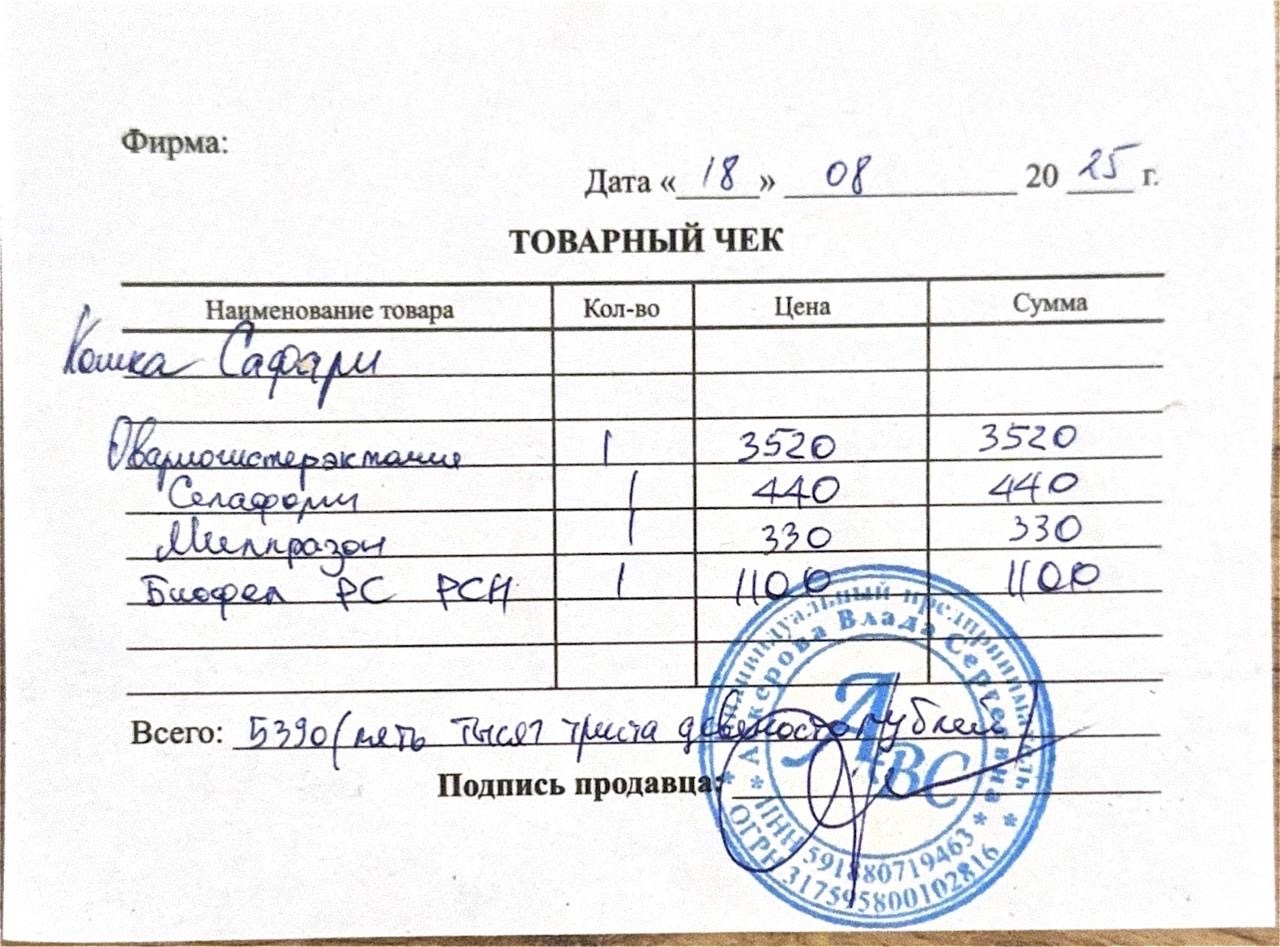 Фирма:
Дата « 18 » 08 20 25 г.
ТОВАРНЫЙ ЧЕК
Наименование товара Кол-во Цена Сумма
Кошка Сафари
Овариогистерэктомия 1 3520 3520
Селафорт 1 440 440
Милпразон 1 330 330
Биофел PC PCH 1 1100 1100
Всего: 5390 (пять тысяч триста девяносто рублей
Подпись продавца:
Индивидуальный предприниматель
Влада Сергеевна
АВС
* ИНН 591880719463 *
* ОГРН 317595800102816 *